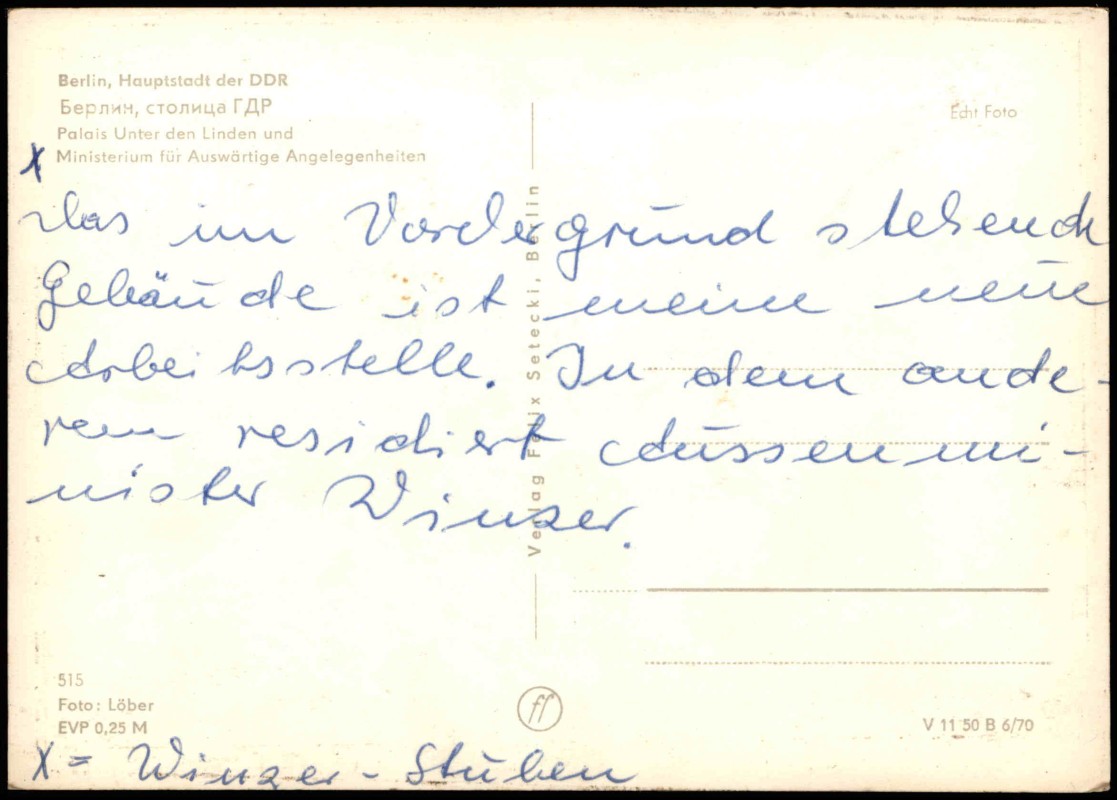 Berlin, Hauptstadt der DDR
Берлин, столица ГДР
Palais Unter den Linden und
X Ministerium für Auswärtige Angelegenheiten
Echt Foto
Das im Vordergrund stehende
Gebäude ist meine neue
Arbeitsstelle. In dem ande-
rem residiert Aussenmi-
nister Winzer.
Verlag Felix Setecki, Berlin
515
Foto: Löber
EVP 0,25 M
ff
V 11 50 B 6/70
X = Winzer-Stuben